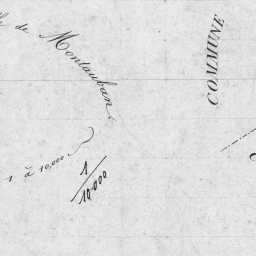 de Montauban
COMMUNE
1 à 10,000
1/10.000